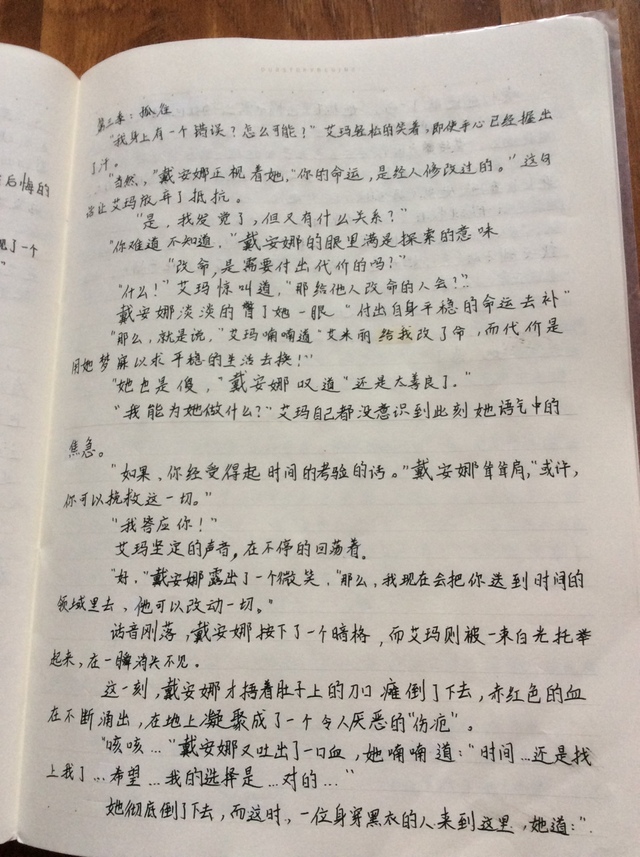 后悔的
现了一个
”
第三章：抵住
“我身上有一个错误？怎么可能？”艾玛轻松的笑着，即使手心已经握出
了汗。
“当然，”戴安娜正视着她，“你的命运，是经人修改过的。”这句
话让艾玛放弃了抵抗。
“是，我发觉了，但又有什么关系？”
“你难道不知道，”戴安娜的眼里满是探索的意味
“改命，是需要付出代价的吗？”
“什么！”艾玛惊叫道，“那给他人改命的人会？”
戴安娜淡淡的瞥了她一眼“付出自身平稳的命运去补”
“那么，就是说，”艾玛喃喃道“艾米丽给我改了命，而代价是
用她梦寐以求平稳的生活去换！”
“她也是傻，”戴安娜叹道“还是太善良了。”
“我能为她做什么？”艾玛自己都没意识到此刻她语气中的
焦急。
“如果，你经受得起时间的考验的话。”戴安娜耸耸肩，“或许，
你可以挽救这一切。”
“我答应你！”
艾玛坚定的声音，在不停的回荡着。
“好，”戴安娜露出了一个微笑，“那么，我现在会把你送到时间的
领域里去，他可以改动一切。”
话音刚落，戴安娜按下了一个暗格，而艾玛则被一束白光托举
起来，在一瞬消失不见。
这一刻，戴安娜才捂着肚子上的刀口瘫倒了下去，赤红色的血
在不断涌出，在地上凝聚成了一个令人厌恶的“伤疤”。
“咳咳…”戴安娜又吐出了一口血，她喃喃道：“时间…还是找
上我了…希望…我的选择是…对的…”
她彻底倒了下去，而这时，一位身穿黑衣的人来到这里，她道：“